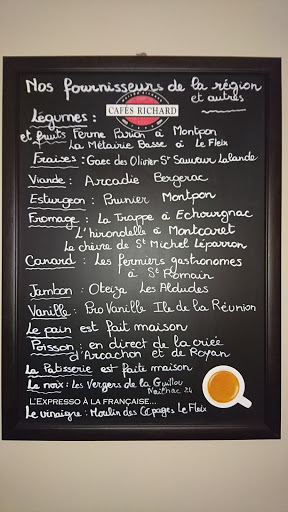 Nos fournisseurs de la région
et autres
CAFÉS RICHARD
Légumes :
et fruits Ferme Parion à Montpon
La Métairie Basse à Le Fleix
Fraises : Gaec des Olivier St Sauveur Lalande
Viande : Arcadie Bergerac
Esturgeon : Prunier Montpon
Fromage : La Trappe à Echourgnac
L'hirondelle à Montcaret
La chèvre de St Michel Léparron
Canard : Les fermiers gastronomes
à St Romain
Jambon : Oteiza Les Aldudes
Vanille : Pro Vanille Ile de la Réunion
Le pain est fait maison
Poisson : en direct de la criée
d'Arcachon et de Royan
La Patisserie est faite maison
La noix : Les Vergers de la Guillou
Nailhac 24
L'EXPRESSO À LA FRANÇAISE...
Le vinaigre : Moulin des Cépages Le Fleix